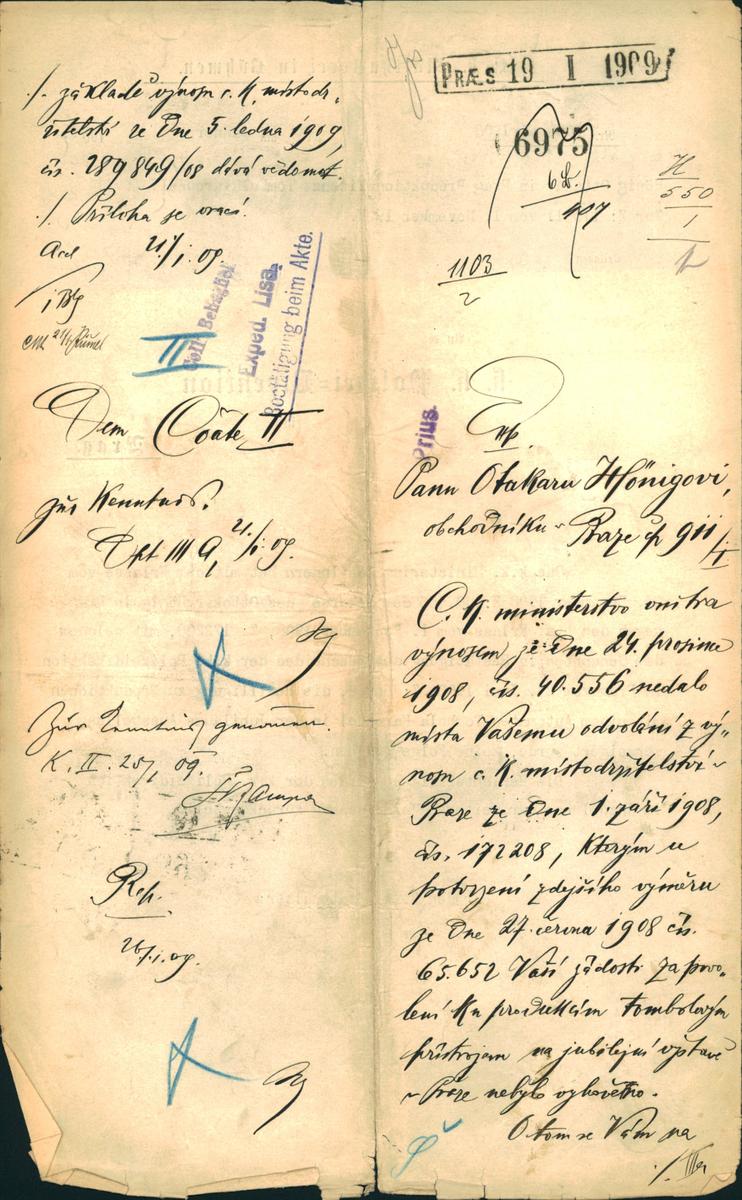 PRÆS 19 I 1909
6975
1103
2
H
550
1
Prius.
Panu Otakaru Hönigovi,
obchodníku v Praze čp 911/I
C. K. ministerstvo vnitra
výnosem ze dne 24. prosince
1908, čís. 40.556 nedalo
místa Vašemu odvolání z vý„
nosu c. K. místodržitelství v
Praze ze dne 1. září 1908,
čís. 172208, Kterým u
potvrzení zdejšího výměru
ze dne 27. června 1908 čís.
65.652 Vaší žádosti za povo„
lení Ku produkcím tombolovým
přístrojem na jubilejní výstavě
v Praze nebylo vyhověno.
O tom se Vám na
./.
základě výnosu c. K. místodr„
žitelství ze dne 5. ledna 1909,
čís. 289849/08 dává vědomost.
./. Příloha se vrací.
21/I. 09.
II
Exped. Lisa.
Bestätigung beim Akte.
Dem Coáte II
zur Kenntnis.
Dpt III A, 21./I. 09.
Zur Kenntnis genommen.
K. II. 25/1 09.
Rep.
26/I. 09.